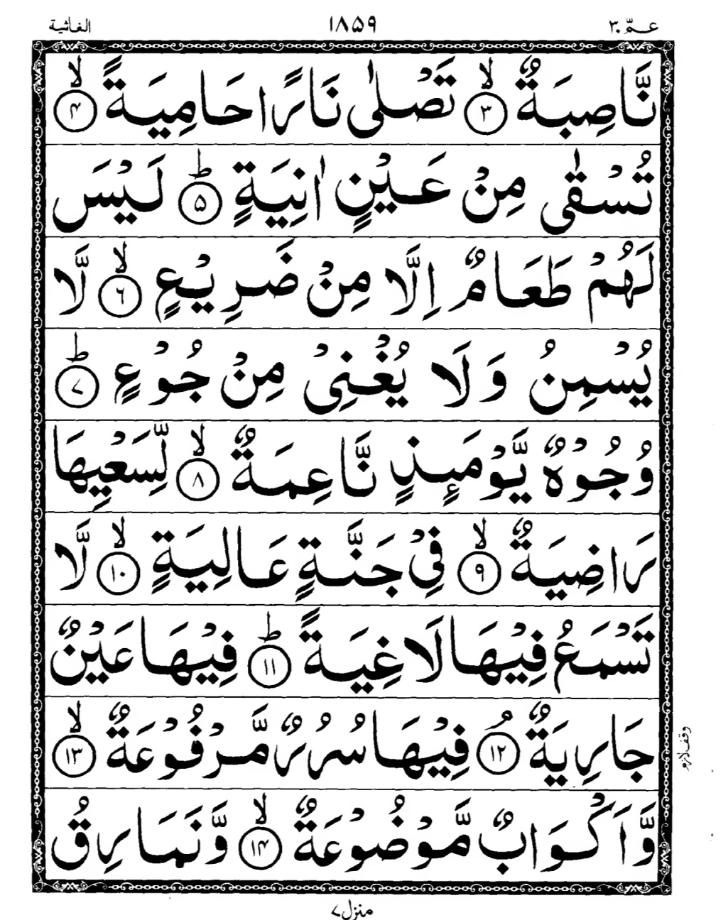 عمّ ٣٠ ١٨٥٩ الغاشية
نَّاصِبَةٌ ۙ﴿٣﴾ تَصْلٰى نَارًا حَامِيَةً ۙ﴿٤﴾
تُسْقٰى مِنْ عَيْنٍ اٰنِيَةٍ ؕ﴿٥﴾ لَيْسَ
لَهُمْ طَعَامٌ اِلَّا مِنْ ضَرِيْعٍ ۙ﴿٦﴾ لَّا
يُسْمِنُ وَلَا يُغْنِيْ مِنْ جُوْعٍ ؕ﴿٧﴾
وُجُوْهٌ يَّوْمَئِذٍ نَّاعِمَةٌ ۙ﴿٨﴾ لِّسَعْيِهَا
رَاضِيَةٌ ۙ﴿٩﴾ فِيْ جَنَّةٍ عَالِيَةٍ ۙ﴿١٠﴾ لَّا
تَسْمَعُ فِيْهَا لَاغِيَةً ؕ﴿١١﴾ فِيْهَا عَيْنٌ
جَارِيَةٌ ۘ﴿١٢﴾ فِيْهَا سُرُرٌ مَّرْفُوْعَةٌ ۙ﴿١٣﴾
وقف لازم
وَّاَكْوَابٌ مَّوْضُوْعَةٌ ۙ﴿١٤﴾ وَّنَمَارِقُ
منزل ٧